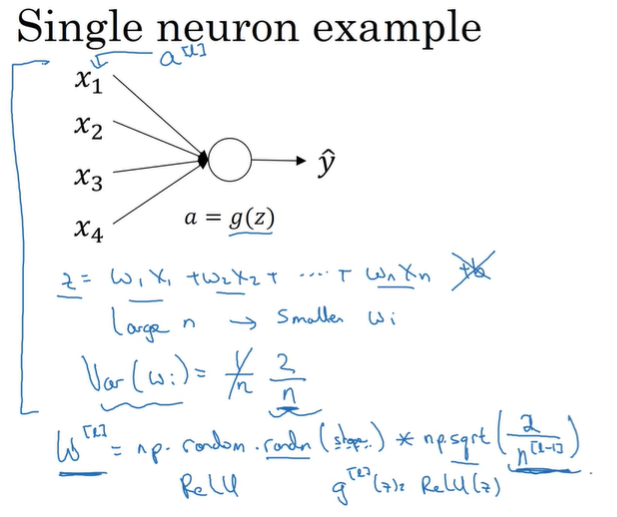 Single neuron example
a^[l]
x₁
x₂
x₃
x₄
ŷ
a = g(z)
z = w₁x₁ + w₂x₂ + ..... + wₙxₙ +b
Large n → Smaller wᵢ
Var(wᵢ) = 1/n 2/n
W^[l] = np.random.randn(shape) * np.sqrt(2/n^[l-1])
ReLU g^[l](z) = ReLU(z)